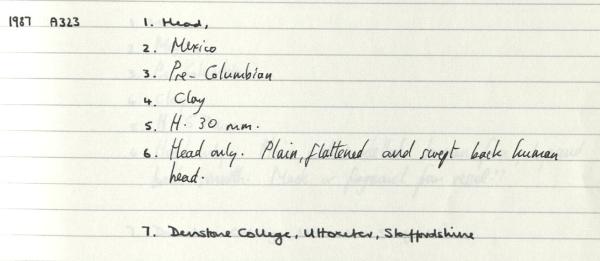 1987 A323 1. Head,
2. Mexico
3. Pre-Columbian
4. Clay
5. H. 30 mm.
6. Head only. Plain, flattened and swept back human
head.
7. Denstone College, Uttoxeter, Staffordshire